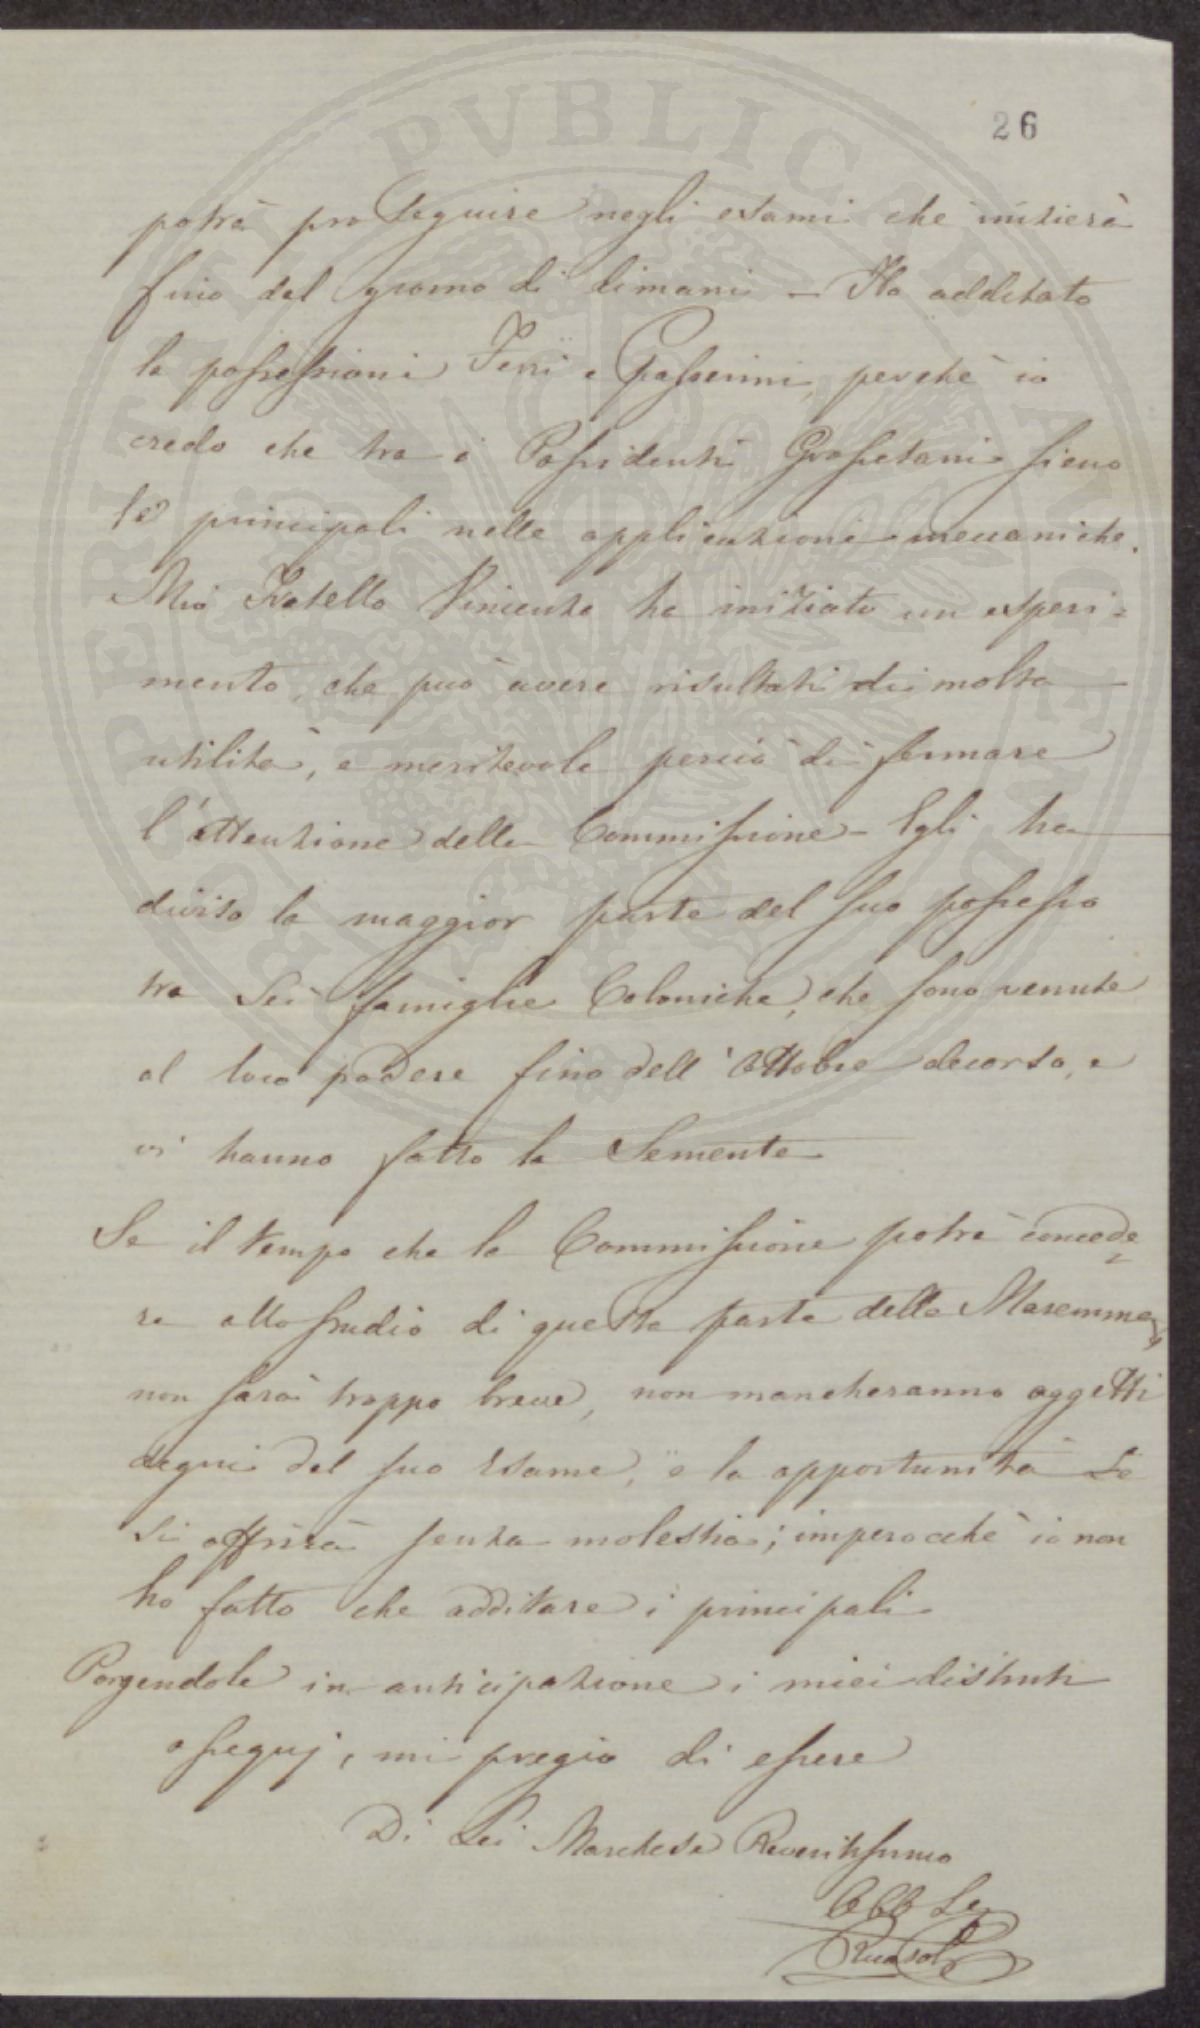 26
potrà proseguire negli esami che inizierà
fino dal giorno di dimani – Ho additato
le possessioni Ferri e Passerini, perché io
credo che tra i Possidenti Grossetani sieno
i principali nelle applicazioni meccaniche.
Mio Fratello Vincenzo ha iniziato un esperi=
mento, che può avere risultati di molta
utilità, e meritevole perciò di fermare
l'attenzione della Commissione – Egli ha
diviso la maggior parte del suo possesso
tra Sei famiglie Coloniche, che sono venute
al loro podere fino dell'Ottobre decorso, e
vi hanno fatto la Sementa
Se il tempo che la Commissione potrà concede
re allo studio di questa parte della Maremma,
non sarà troppo breve, non mancheranno oggetti
degni del suo Esame, e la opportunità Le
si offrirà senza molestia; imperocché io non
ho fatto che additare i principali
Porgendole in anticipazione i miei distinti
ossequj, mi pregio di essere
Di Lei Marchese Reveritissimo
Ricasoli
PVBLICAE